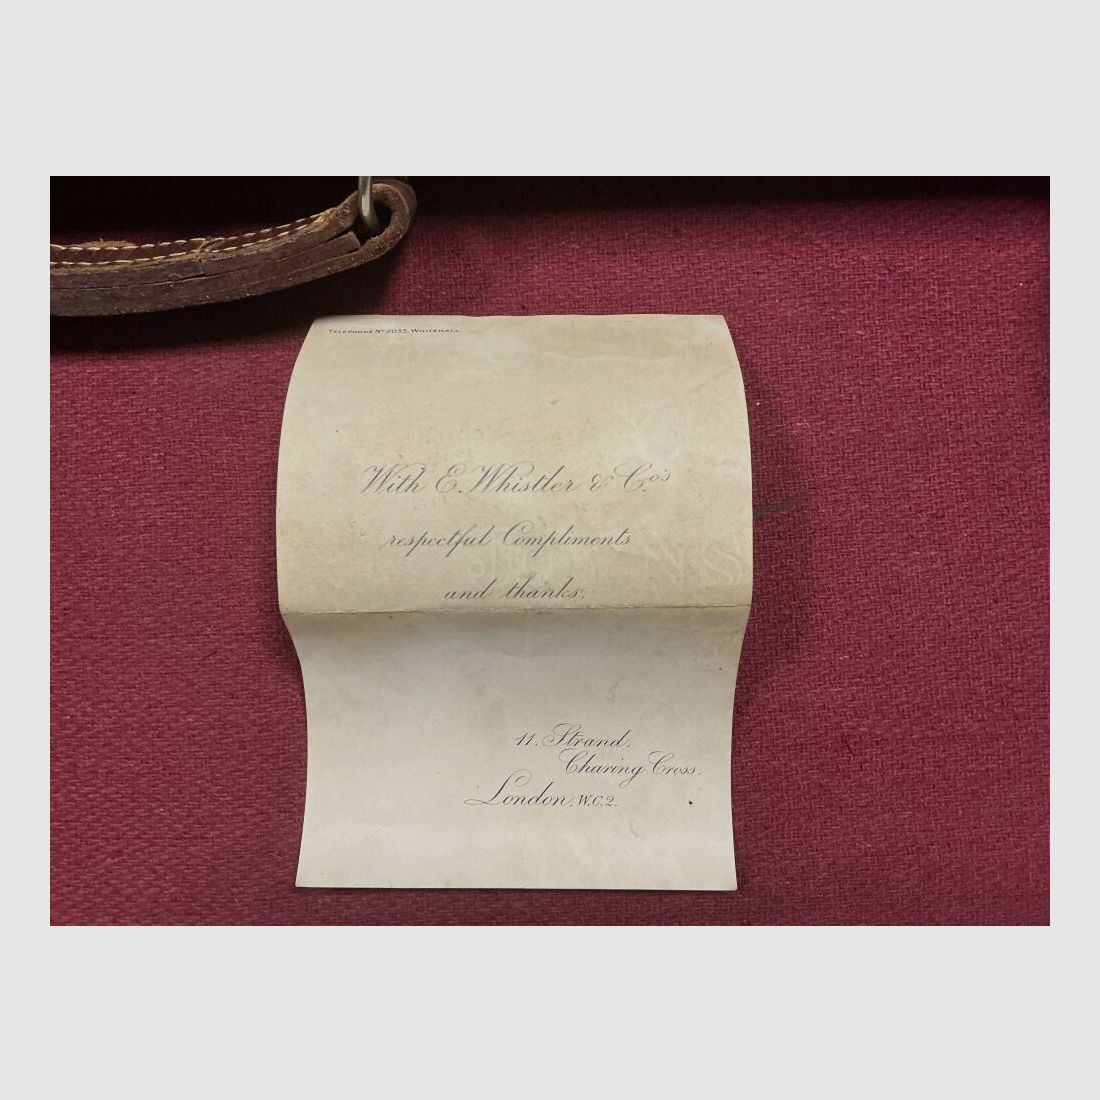 TELEPHONE Nº 2033, WHITEHALL.
With E. Whistler & Co's
respectful Compliments
and thanks.
11, Strand,
Charing Cross,
London, W.C.2.